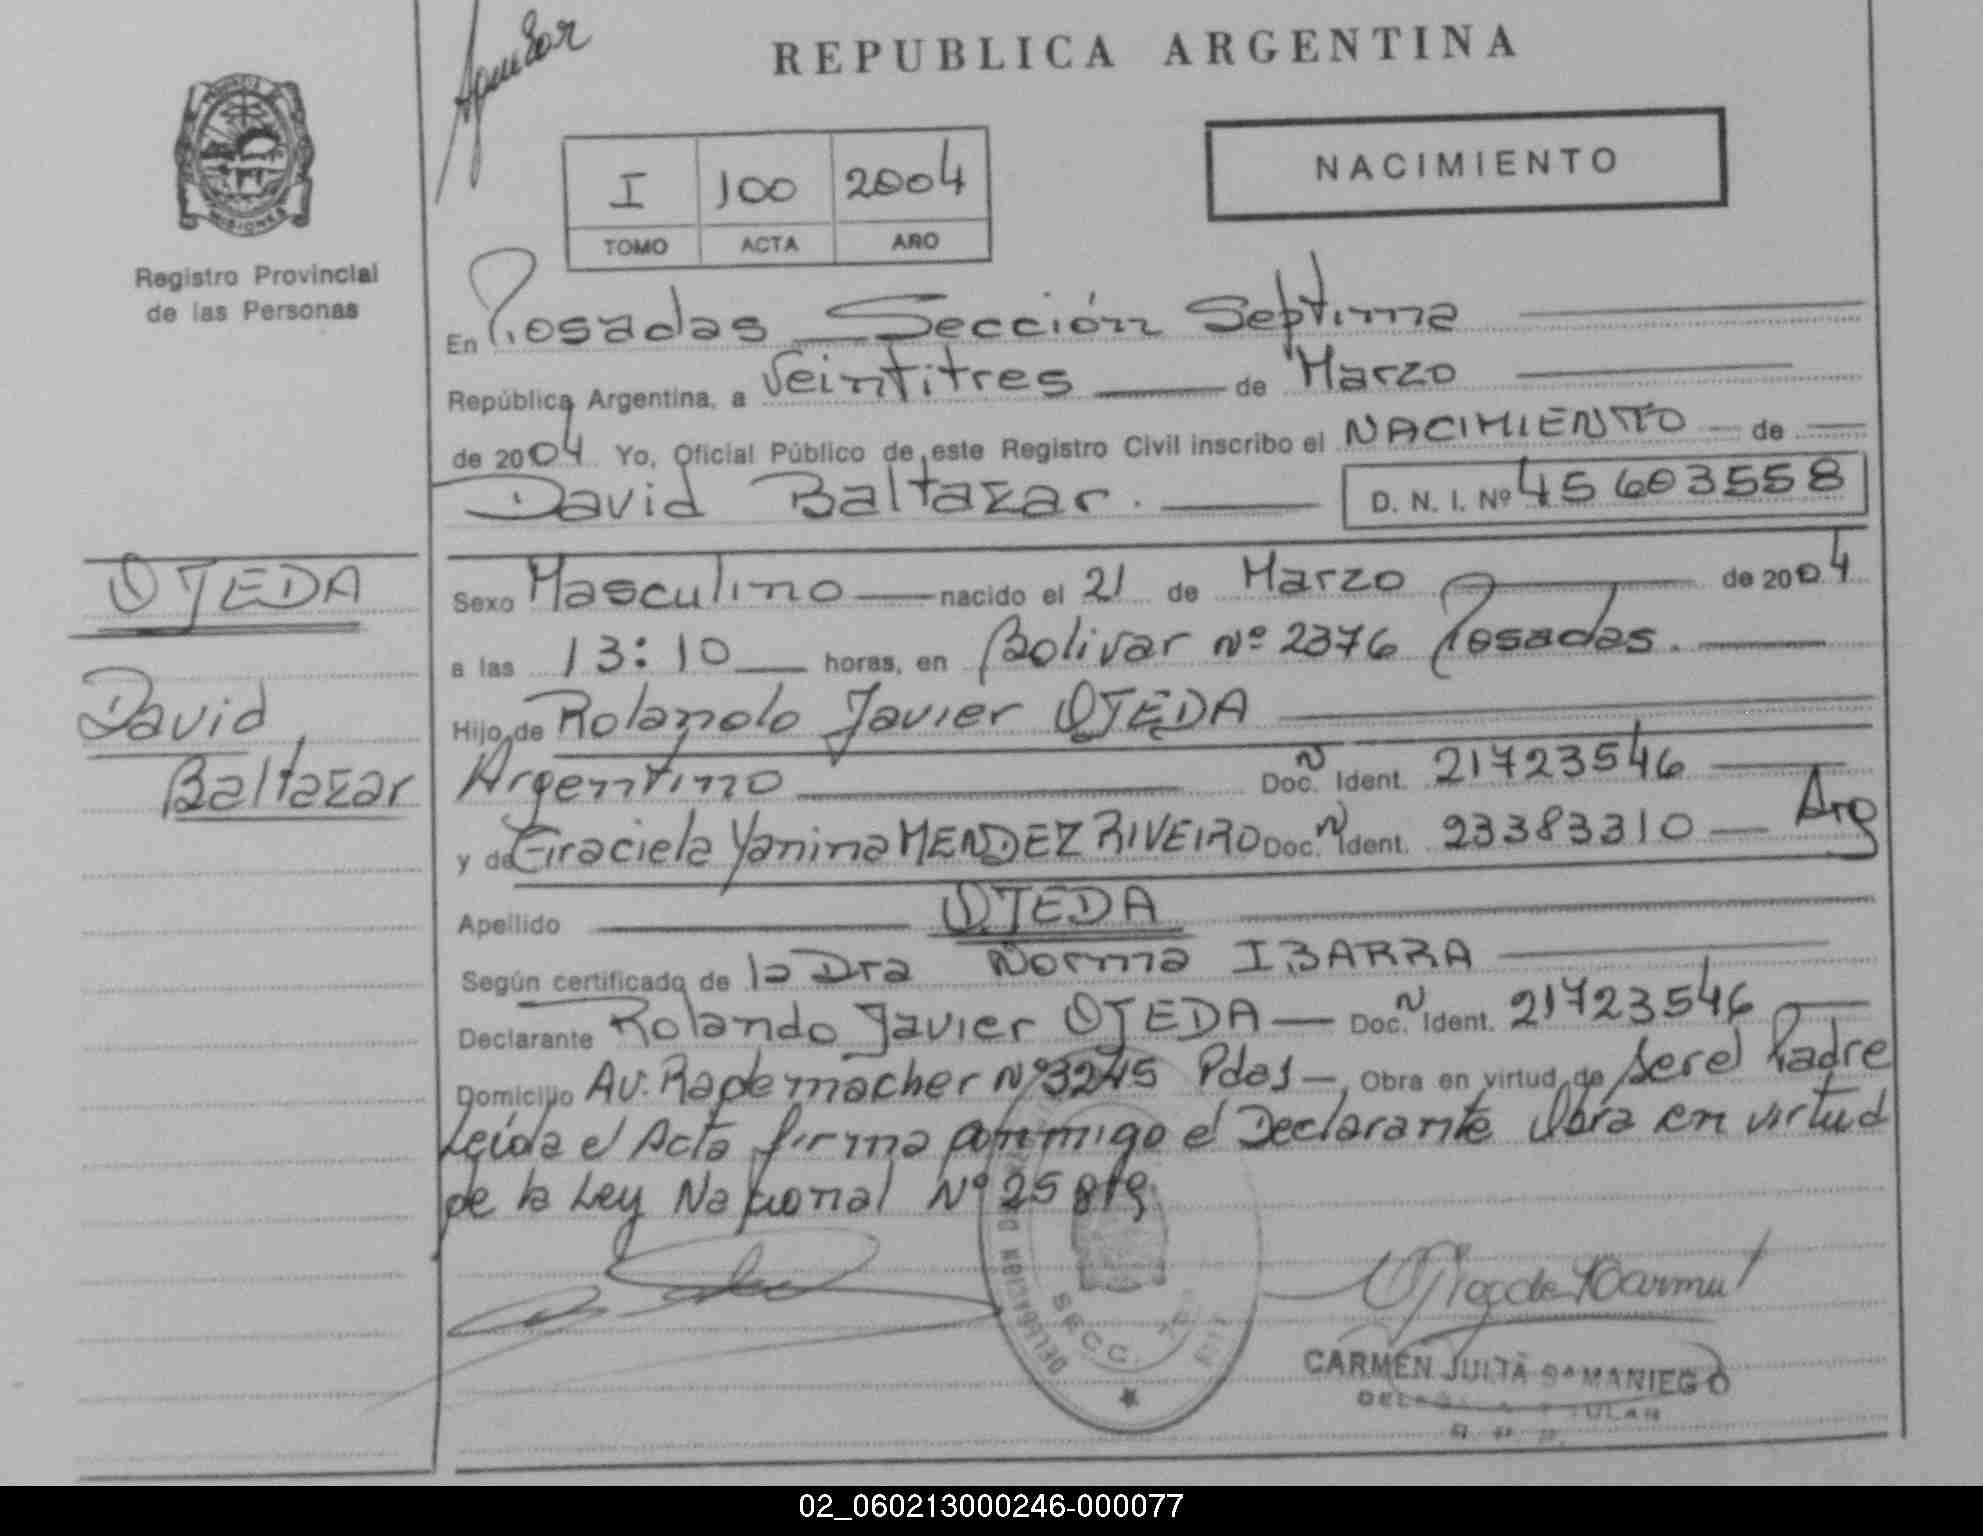 REPUBLICA ARGENTINA
MISIONES
Registro Provincial
de las Personas
I 100 2004
TOMO ACTA AÑO
NACIMIENTO
En Posadas Sección Septima
República Argentina, a Veintitres de Marzo
de 2004 Yo, Oficial Público de este Registro Civil inscribo el NACIMIENTO de
David Baltazar. D. N. I. Nº 45 603558
OJEDA
David
Baltazar
Sexo Masculino nacido el 21 de Marzo de 2004
a las 13:10 horas, en Bolivar Nº 2376 Posadas.
Hijo de Rolando Javier OJEDA
Argentino Doc. N Ident. 21723546
y de Graciela Yanina MENDEZ RIVEIRO Doc. N Ident. 23383310 Arg
Apellido OJEDA
Según certificado de la Dra Norma IBARRA
Declarante Rolando Javier OJEDA Doc. N Ident. 21723546
Domicilio Av. Rademacher Nº 3245 Pdas Obra en virtud de ser el Padre
Leída el Acta firma conmigo el Declarante Obra en virtud
de la Ley Nacional Nº 25819
DELEGACION
SECC. 7
CARMEN JULIA SAMANIEGO
02_060213000246-000077